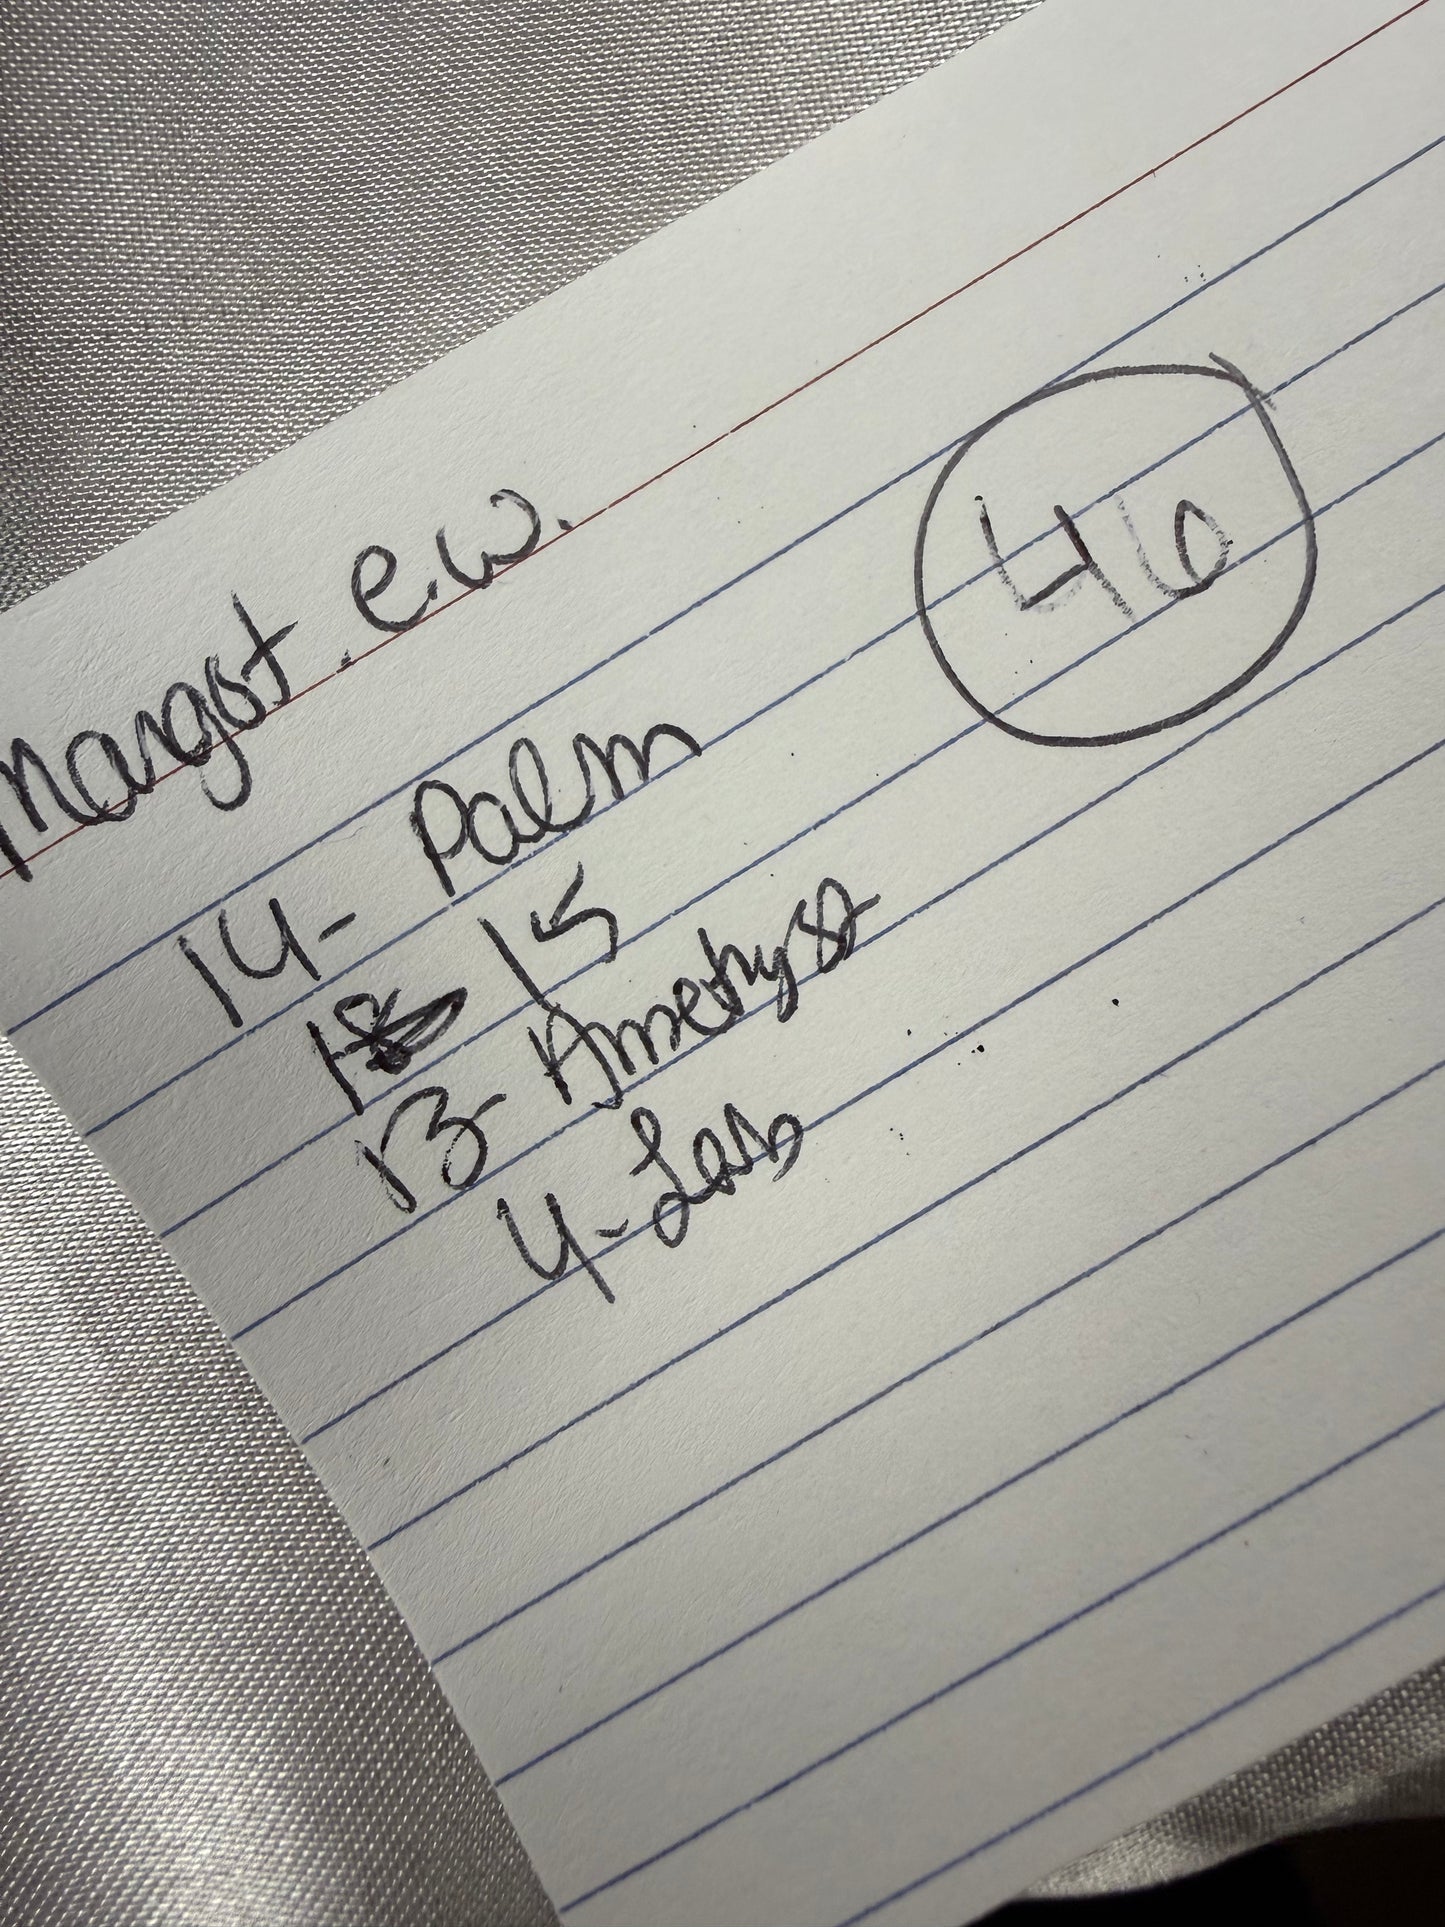 margot.e.w.
46
14- Palm
15
13- Amethyst
4-